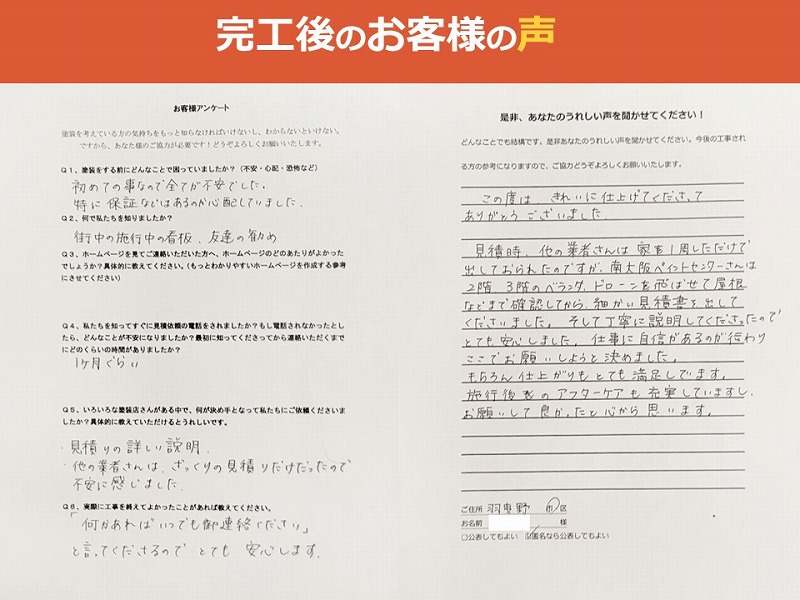 完工後のお客様の声
お客様アンケート
塗装を考えている方の気持ちをもっと知らなければいけないし、わからないといけない。
ですから、あなた様のご協力が必要です！どうぞよろしくお願いいたします。
Q1、塗装をする前にどんなことで困っていましたか？（不安・心配・恐怖など）
初めての事なので全てが不安でした。
特に保証などはあるのか心配していました。
Q2、何で私たちを知りましたか？
街中の施行中の看板、友達の勧め
Q3、ホームページを見てご連絡いただいた方へ、ホームページのどのあたりがよかった
でしょうか？具体的に教えてください。（もっとわかりやすいホームページを作成する参考
にさせてください）
Q4、私たちを知ってすぐに見積依頼の電話をされましたか？もし電話されなかったとし
たら、どんなことが不安になりましたか？最初に知ってくださってから連絡いただくまで
にどのくらいの時間がありましたか？
1ヶ月ぐらい
Q5、いろいろな塗装店さんがある中で、何が決め手となって私たちにご依頼くださいま
したか？具体的に教えていただけるとうれしいです。
・見積りの詳しい説明。
・他の業者さんは、ざっくりの見積りだけだったので
不安に感じました。
Q6、実際に工事を終えてよかったことがあれば教えてください。
「何かあればいつでも御連絡ください」
と言ってくださるのでとても安心します。
是非、あなたのうれしい声を聞かせてください！
どんなことでも結構です。是非あなたのうれしい声を聞かせてください。今後の工事され
る方の参考になりますので、ご協力どうぞよろしくお願いいたします。
この度は、きれいに仕上げてくださって
ありがとうございました。
見積時、他の業者さんは家を1周しただけで
出しておられたのですが、南大阪ペイントセンターさんは
2階、3階のベランダ、ドローンを飛ばせて屋根
などまで確認してから、細かい見積書を出して
くださいました。そして丁寧に説明してくださったので
とても安心しました。仕事に自信があるのが伝わり
ここでお願いしようと決めました。
もちろん仕上がりもとても満足しています。
施行後のアフターケアも充実していますし、
お願いして良かったと心から思います。
ご住所 羽曳野 市・区
お名前 様
□公表してもよい ☑匿名なら公表してもよい